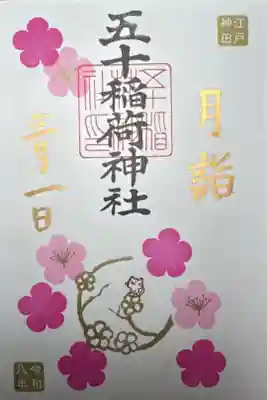 江戸
神田
月詣
五十稲荷神社
一日
令和
八年